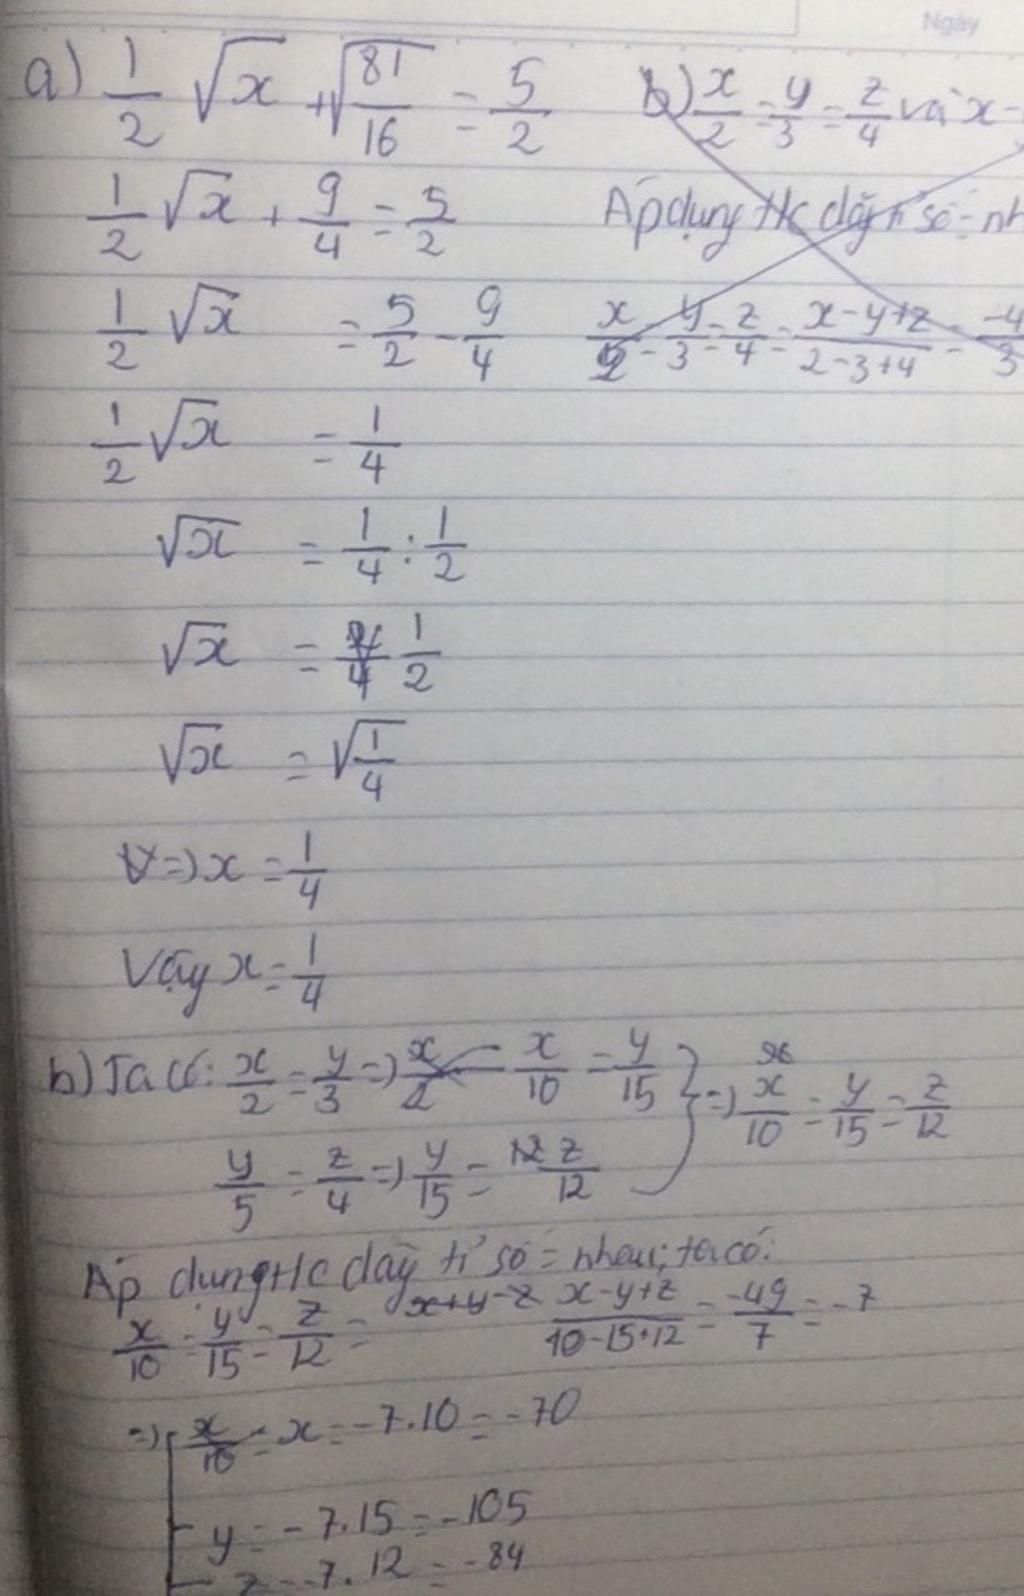 Ngày
a) 1/2 √x + √81/16 = 5/2
1/2 √x + 9/4 = 5/2
1/2 √x = 5/2 - 9/4
1/2 √x = 1/4
√x = 1/4 : 1/2
√x = 1/2
√x = √1/4
=) x = 1/4
Vậy x = 1/4
b) x/2 = y/3 = z/4 và x -
Áp dụng t/c dãy tỉ số = nh
x/2 = y/3 = z/4 = x-y+z/2-3+4 = -4/3
b) Ta có: x/2 = y/3 =) x/10 = y/15
y/5 = z/4 =) y/15 = z/12
=) x/10 = y/15 = z/12
Áp dụng t/c dãy tỉ số = nhau; ta có:
x/10 = y/15 = z/12 = x+y-z x-y+z/10-15+12 = -49/7 = -7
=) x/10 = x = -7.10 = -70
y = -7.15 = -105
z = -7.12 = -84